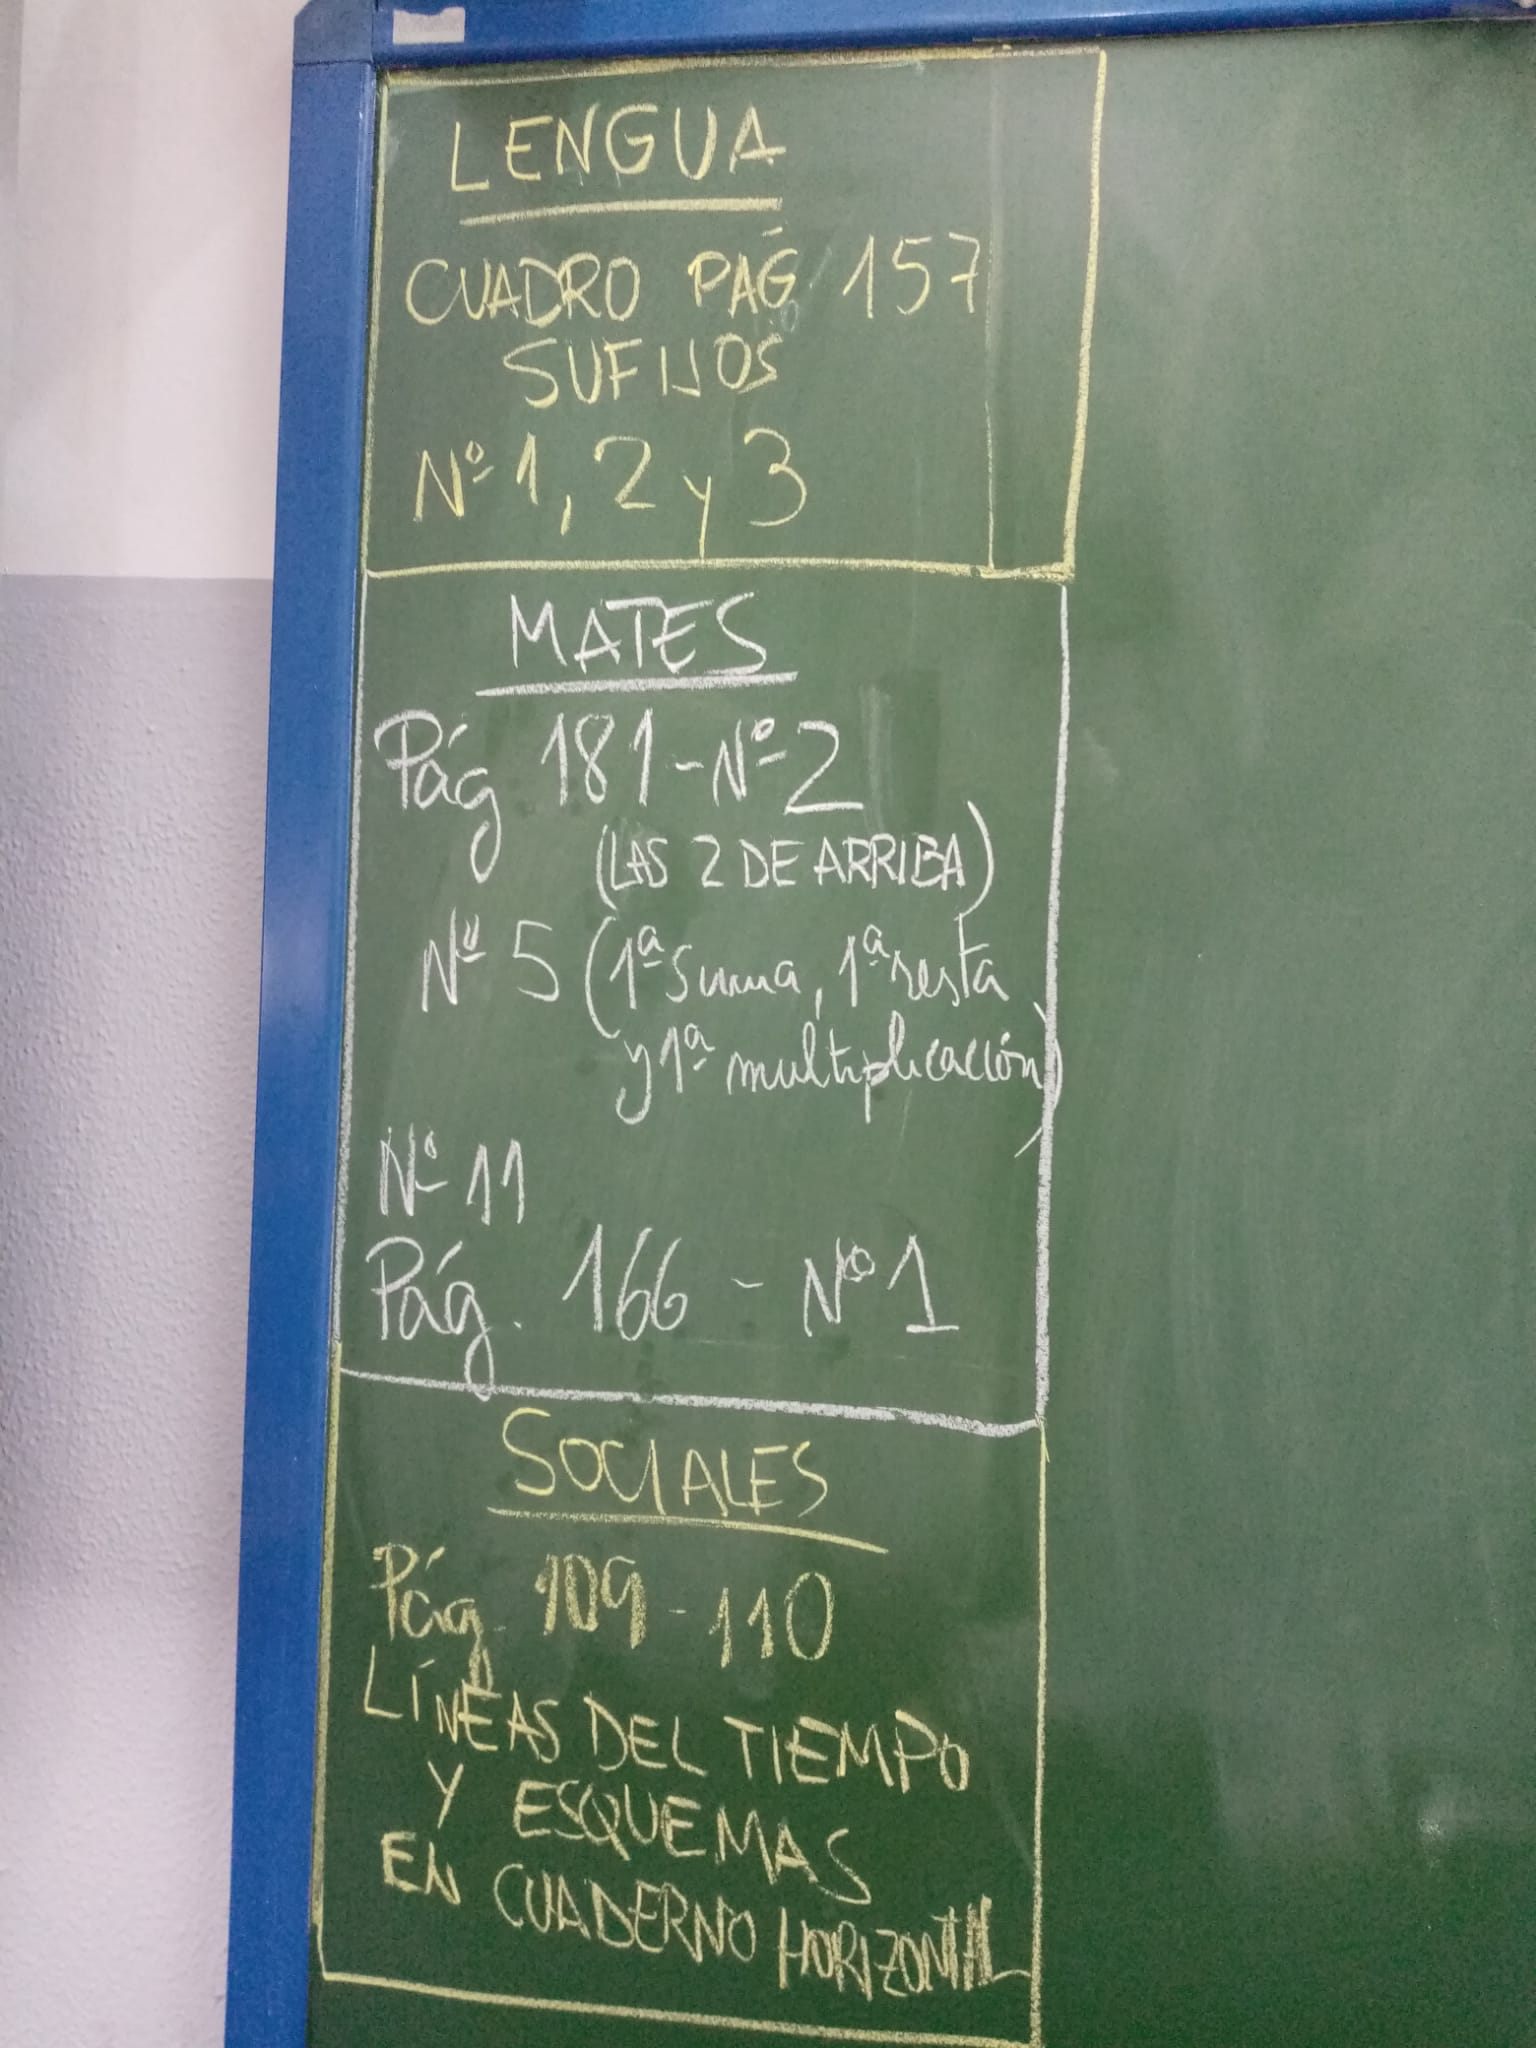 LENGUA
CUADRO PÁG. 157
SUFIJOS
Nº 1, 2 y 3
MATES
Pág 181 - Nº 2
(LAS 2 DE ARRIBA)
Nº 5 (1ª suma, 1ª resta
y 1ª multiplicación)
Nº 11
Pág. 166 - Nº 1
SOCIALES
Pág. 109 - 110
LÍNEAS DEL TIEMPO
Y ESQUEMAS
EN CUADERNO HORIZONTAL